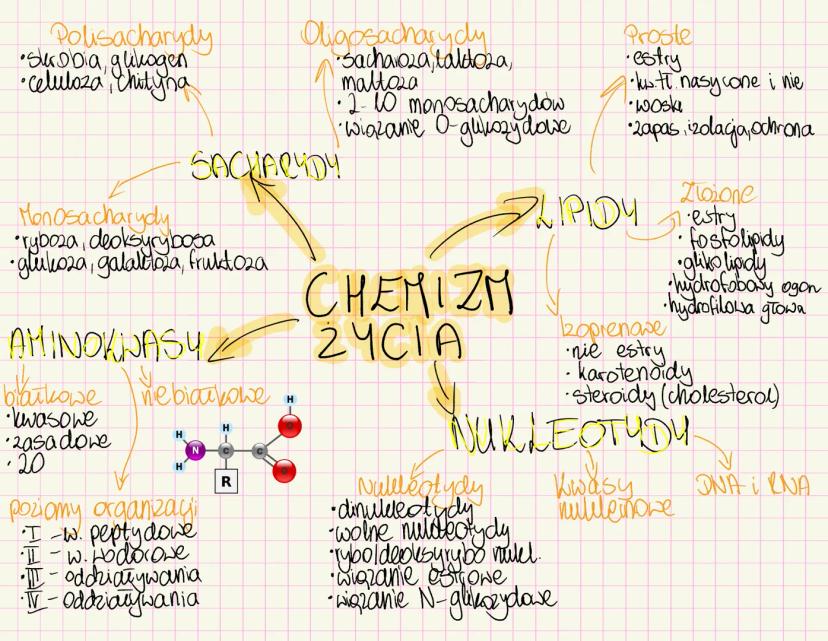 Polisacharydy
• skrobia, glikogen
• celuloza, chityna
Oligosacharydy
• sacharoza, laktoza,
maltoza
• 2-10 monosacharydów
• wiązanie O-glikozydowe
Proste
• estry
• kw. tł. nasycone i nie
• woski
• zapas, izolacja, ochrona
SACHARYDY
Monosacharydy
• ryboza, deoksyrybosa
• glukoza, galaktoza, fruktoza
LIPIDY
Złożone
• estry
• fosfolipidy
• glikolipidy
• hydrofobowy ogon
• hydrofilowa głowa
CHEMIZM
ŻYCIA
Izoprenowe
• nie estry
• karotenoidy
• steroidy (cholesterol)
AMINOKWASY
białkowe
• kwasowe
• zasadowe
• 20
niebiałkowe
H
H
N
H
C
R
C
O
H
O
poziomy organizacji
• I - w. peptydowe
• II - w. wodorowe
• III - oddziaływania
• IV - oddziaływania
NUKLEOTYDY
Nukleotydy
• dinukleotydy
• wolne nukleotydy
• rybo/deoksyrybo nukl.
• wiązanie estrowe
• wiązanie N-glikozydowe
Kwasy
nukleinowe
DNA i RNA